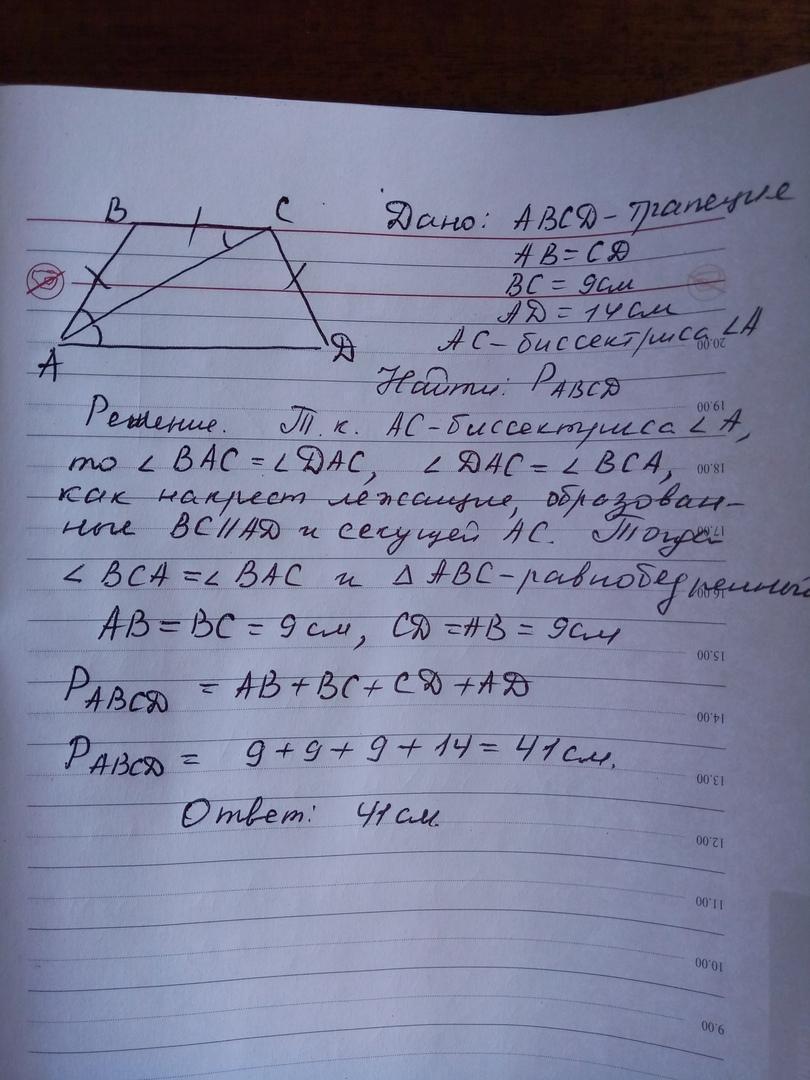 B
C
A
D
Дано: ABCD - трапеция
AB = CD
BC = 9 см
AD = 14 см
AC - биссектриса ∠A
Найти: P ABCD
Решение. Т.к. AC - биссектриса ∠A,
то ∠BAC = ∠DAC, ∠DAC = ∠BCA,
как накрест лежащие, образован-
ные BC || AD и секущей AC. Тогда
∠BCA = ∠BAC и ΔABC - равнобедренный
AB = BC = 9 см, CD = AB = 9 см
P ABCD = AB + BC + CD + AD
P ABCD = 9 + 9 + 9 + 14 = 41 см.
Ответ: 41 см.
20.00
19.00
18.00
17.00
16.00
15.00
14.00
13.00
12.00
11.00
10.00
9.00